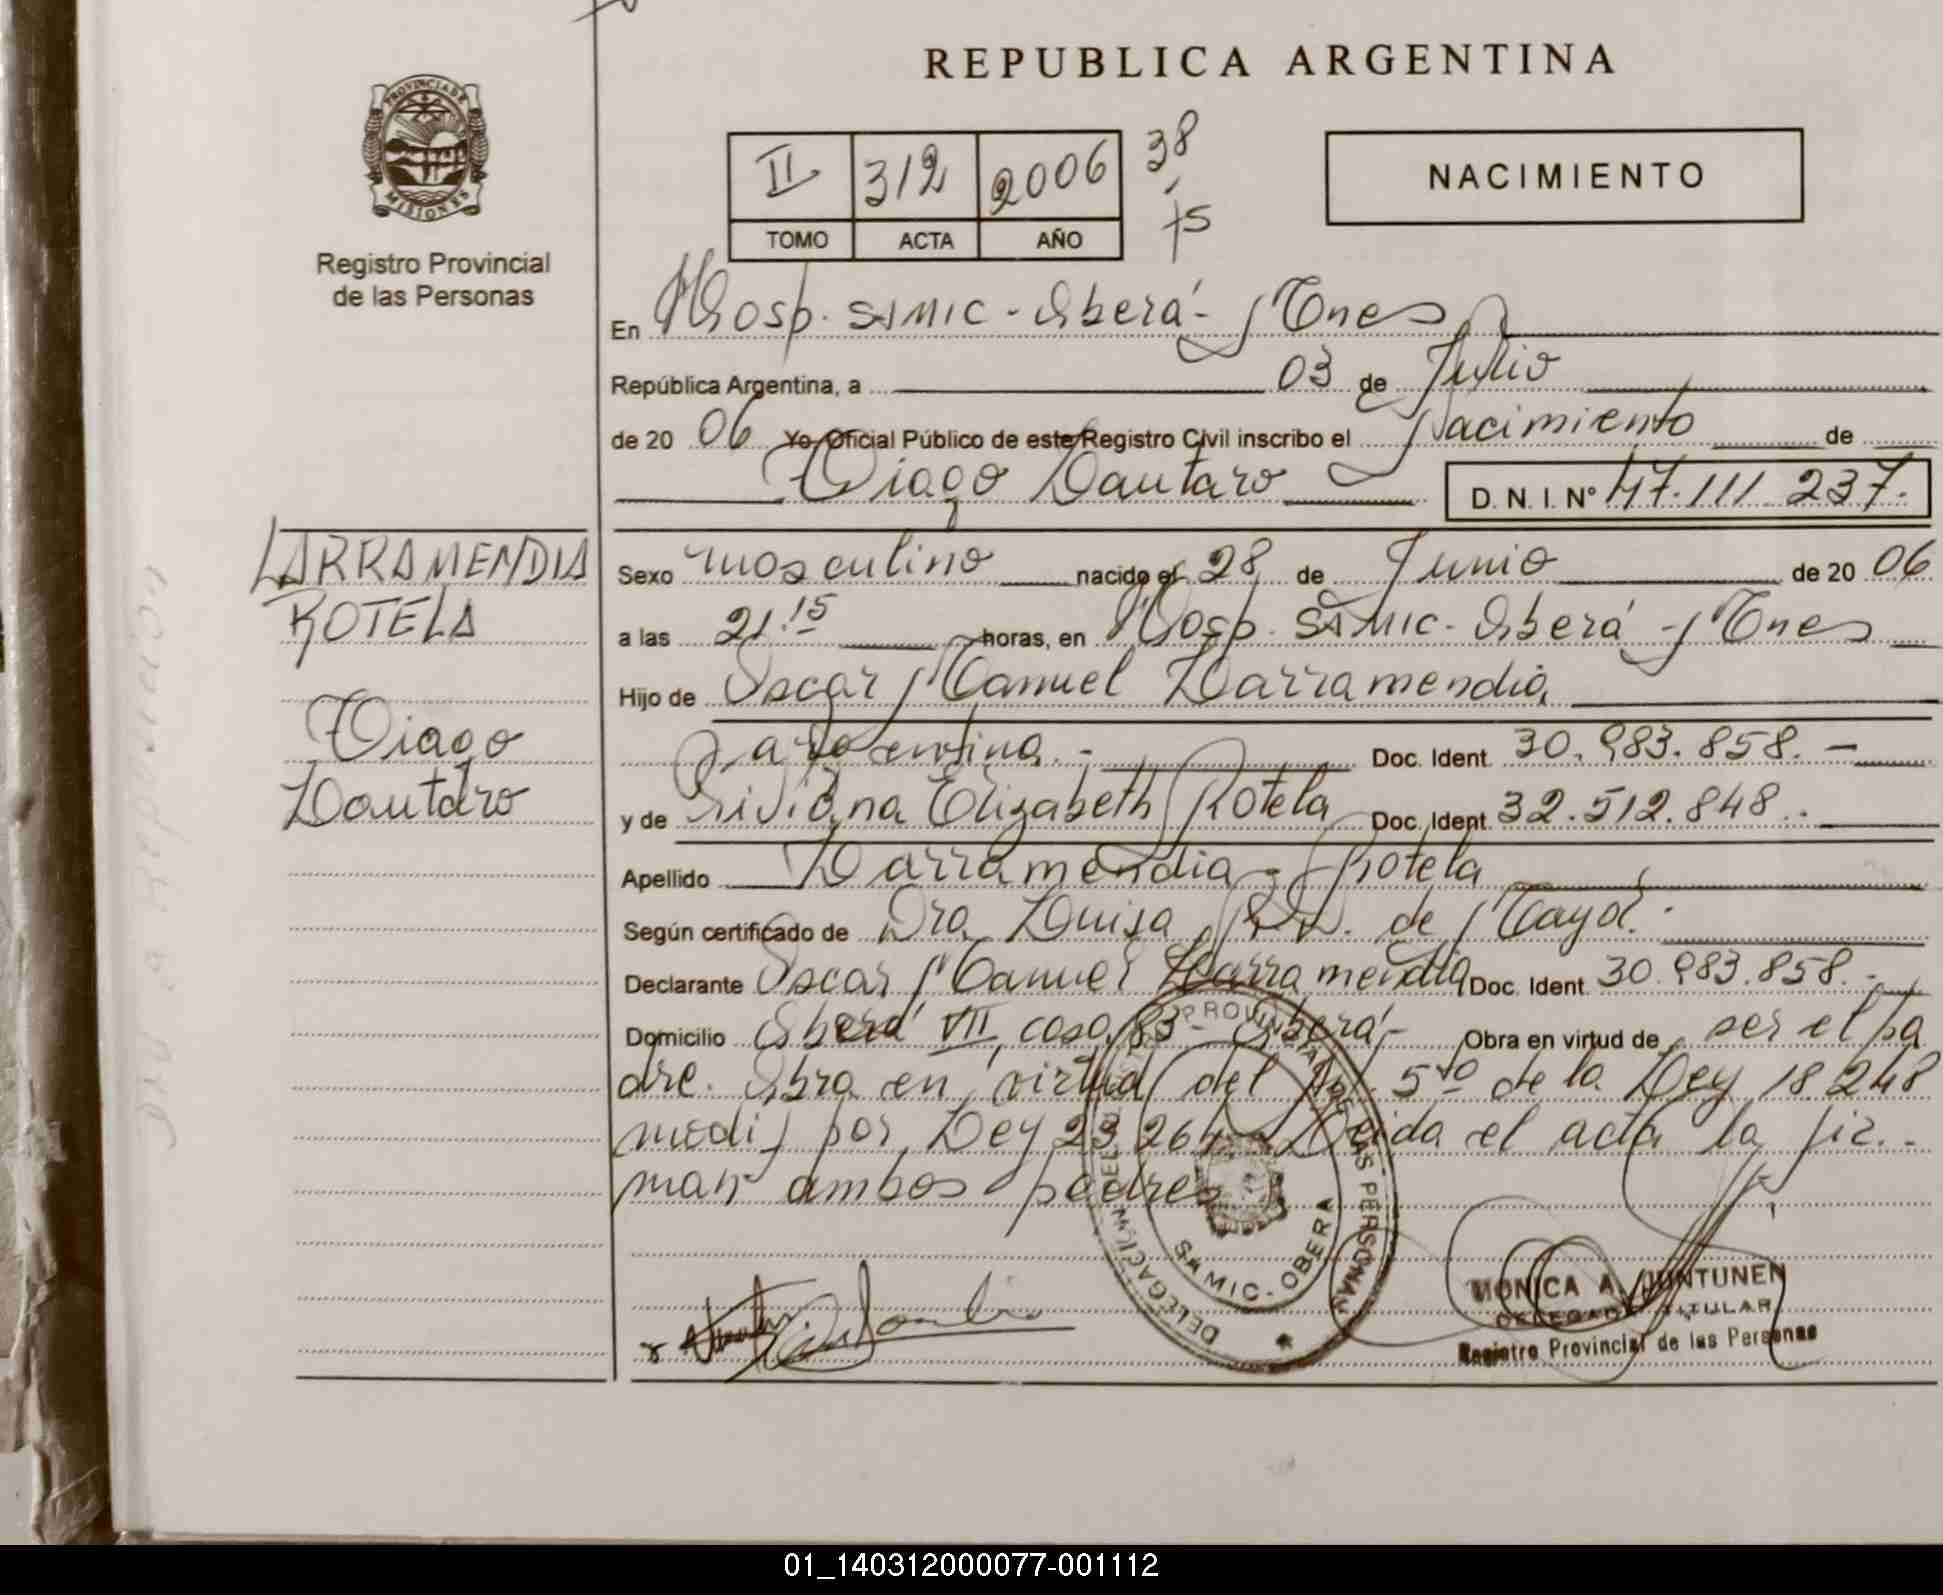 REPUBLICA ARGENTINA
PROVINCIA DE
MISIONES
Registro Provincial
de las Personas
II 312 2006
TOMO ACTA AÑO
38
15
NACIMIENTO
En Hosp. SAMIC - Oberá - Mnes
República Argentina, a 03 de Julio
de 20 06 Yo Oficial Público de este Registro Civil inscribo el Nacimiento de
Tiago Lautaro D. N. I. N° 47.111.237.
LARRAMENDIA
ROTELA
Tiago
Lautaro
Sexo masculino nacido el 28 de Junio de 20 06
a las 21.15 horas, en Hosp. SAMIC - Oberá - Mnes
Hijo de Oscar Manuel Larramendia
argentina. - Doc. Ident. 30.983.858. -
y de Viviana Elizabeth Rotela Doc. Ident. 32.512.848.
Apellido Larramendia - Rotela
Según certificado de Dra Luisa de Mayol.
Declarante Oscar Manuel Larramendia Doc. Ident. 30.983.858. -
Domicilio Oberá VII, casa 83 - Oberá - Obra en virtud de ser el pa
dre. Obra en virtud del Art. 5to de la Ley 18.248
modif por Ley 23.264. Leida el acta la fir-
man ambos padres
DELEGACION
PROVINCIAL DE LAS PERSONAS
SAMIC - OBERA
MONICA A. JUNTUNEN
DELEGADA TITULAR
Registro Provincial de las Personas
01_140312000077-001112